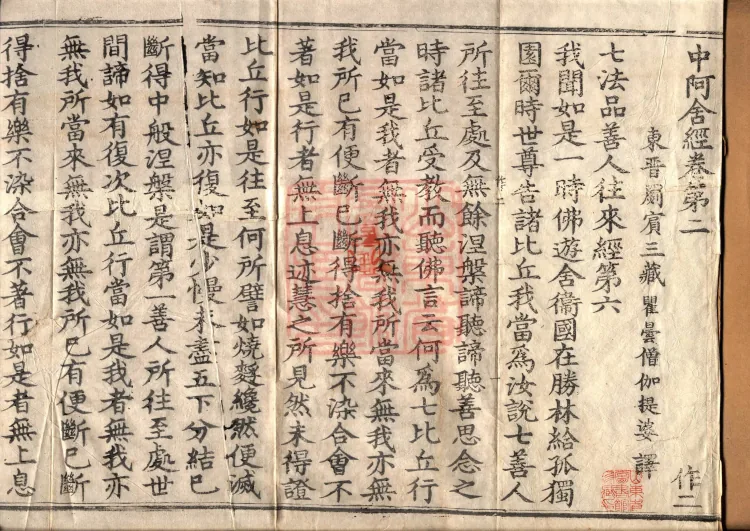 中阿含經卷第二
作二
東晉罽賓三藏瞿曇僧伽提婆譯
七法品善人往來經第六
我聞如是一時佛遊舍衞國在勝林給孤獨
園爾時世尊告諸比丘我當爲汝說七善人
所往至處及無餘涅槃諦聽諦聽善思念之
時諸比丘受教而聽佛言云何爲七比丘行
當如是我者無我亦無我所當來無我亦無
我所已有便斷已斷得捨有樂不染合會不
著如是行者無上息迹慧之所見然未得證
比丘行如是往至何所譬如燒麩纔然便滅
當知比丘亦復如是少慢未盡五下分結已
斷得中般涅槃是謂第一善人所往至處世
間諦如有復次比丘行當如是我者無我亦
無我所當來無我亦無我所已有便斷已斷
得捨有樂不染合會不著行如是者無上息